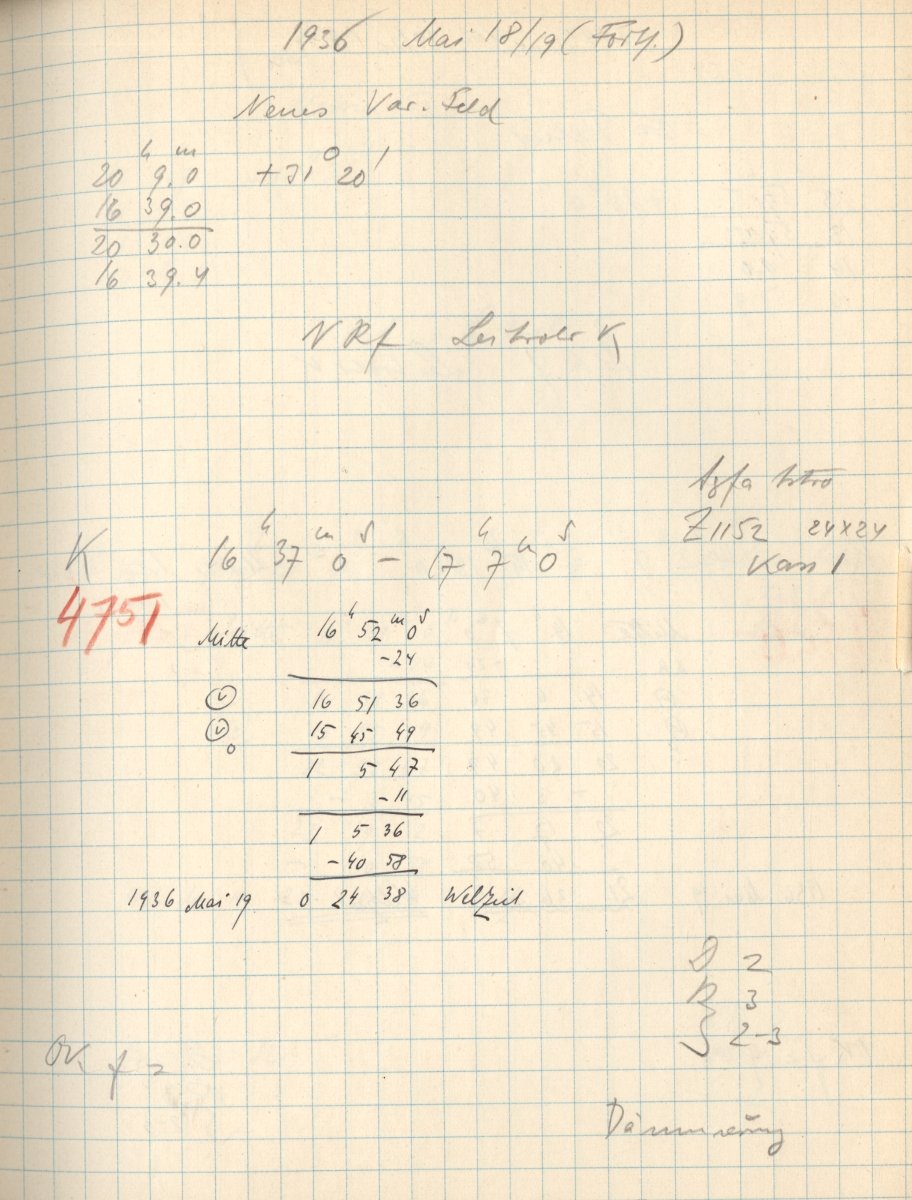 1936 Mai 18/19 (Forts.)
Neues Var. Feld
20h 9m.0 +31° 20'
16 39.0
20 30.0
16 39.4
NRf Leitrohr K
Agfa Astro
Z1152 24x24
Kass 1
K 16h 37m 0s – 17h 7m 0s
4751
Mitte 16h 52m 0s
-24
16 51 36
15 45 49
1 5 47
-11
1 5 36
-40 58
1936 Mai 19 0 24 38 Weltzeit
D 2
R 3
S 2-3
OK
Dämmerung